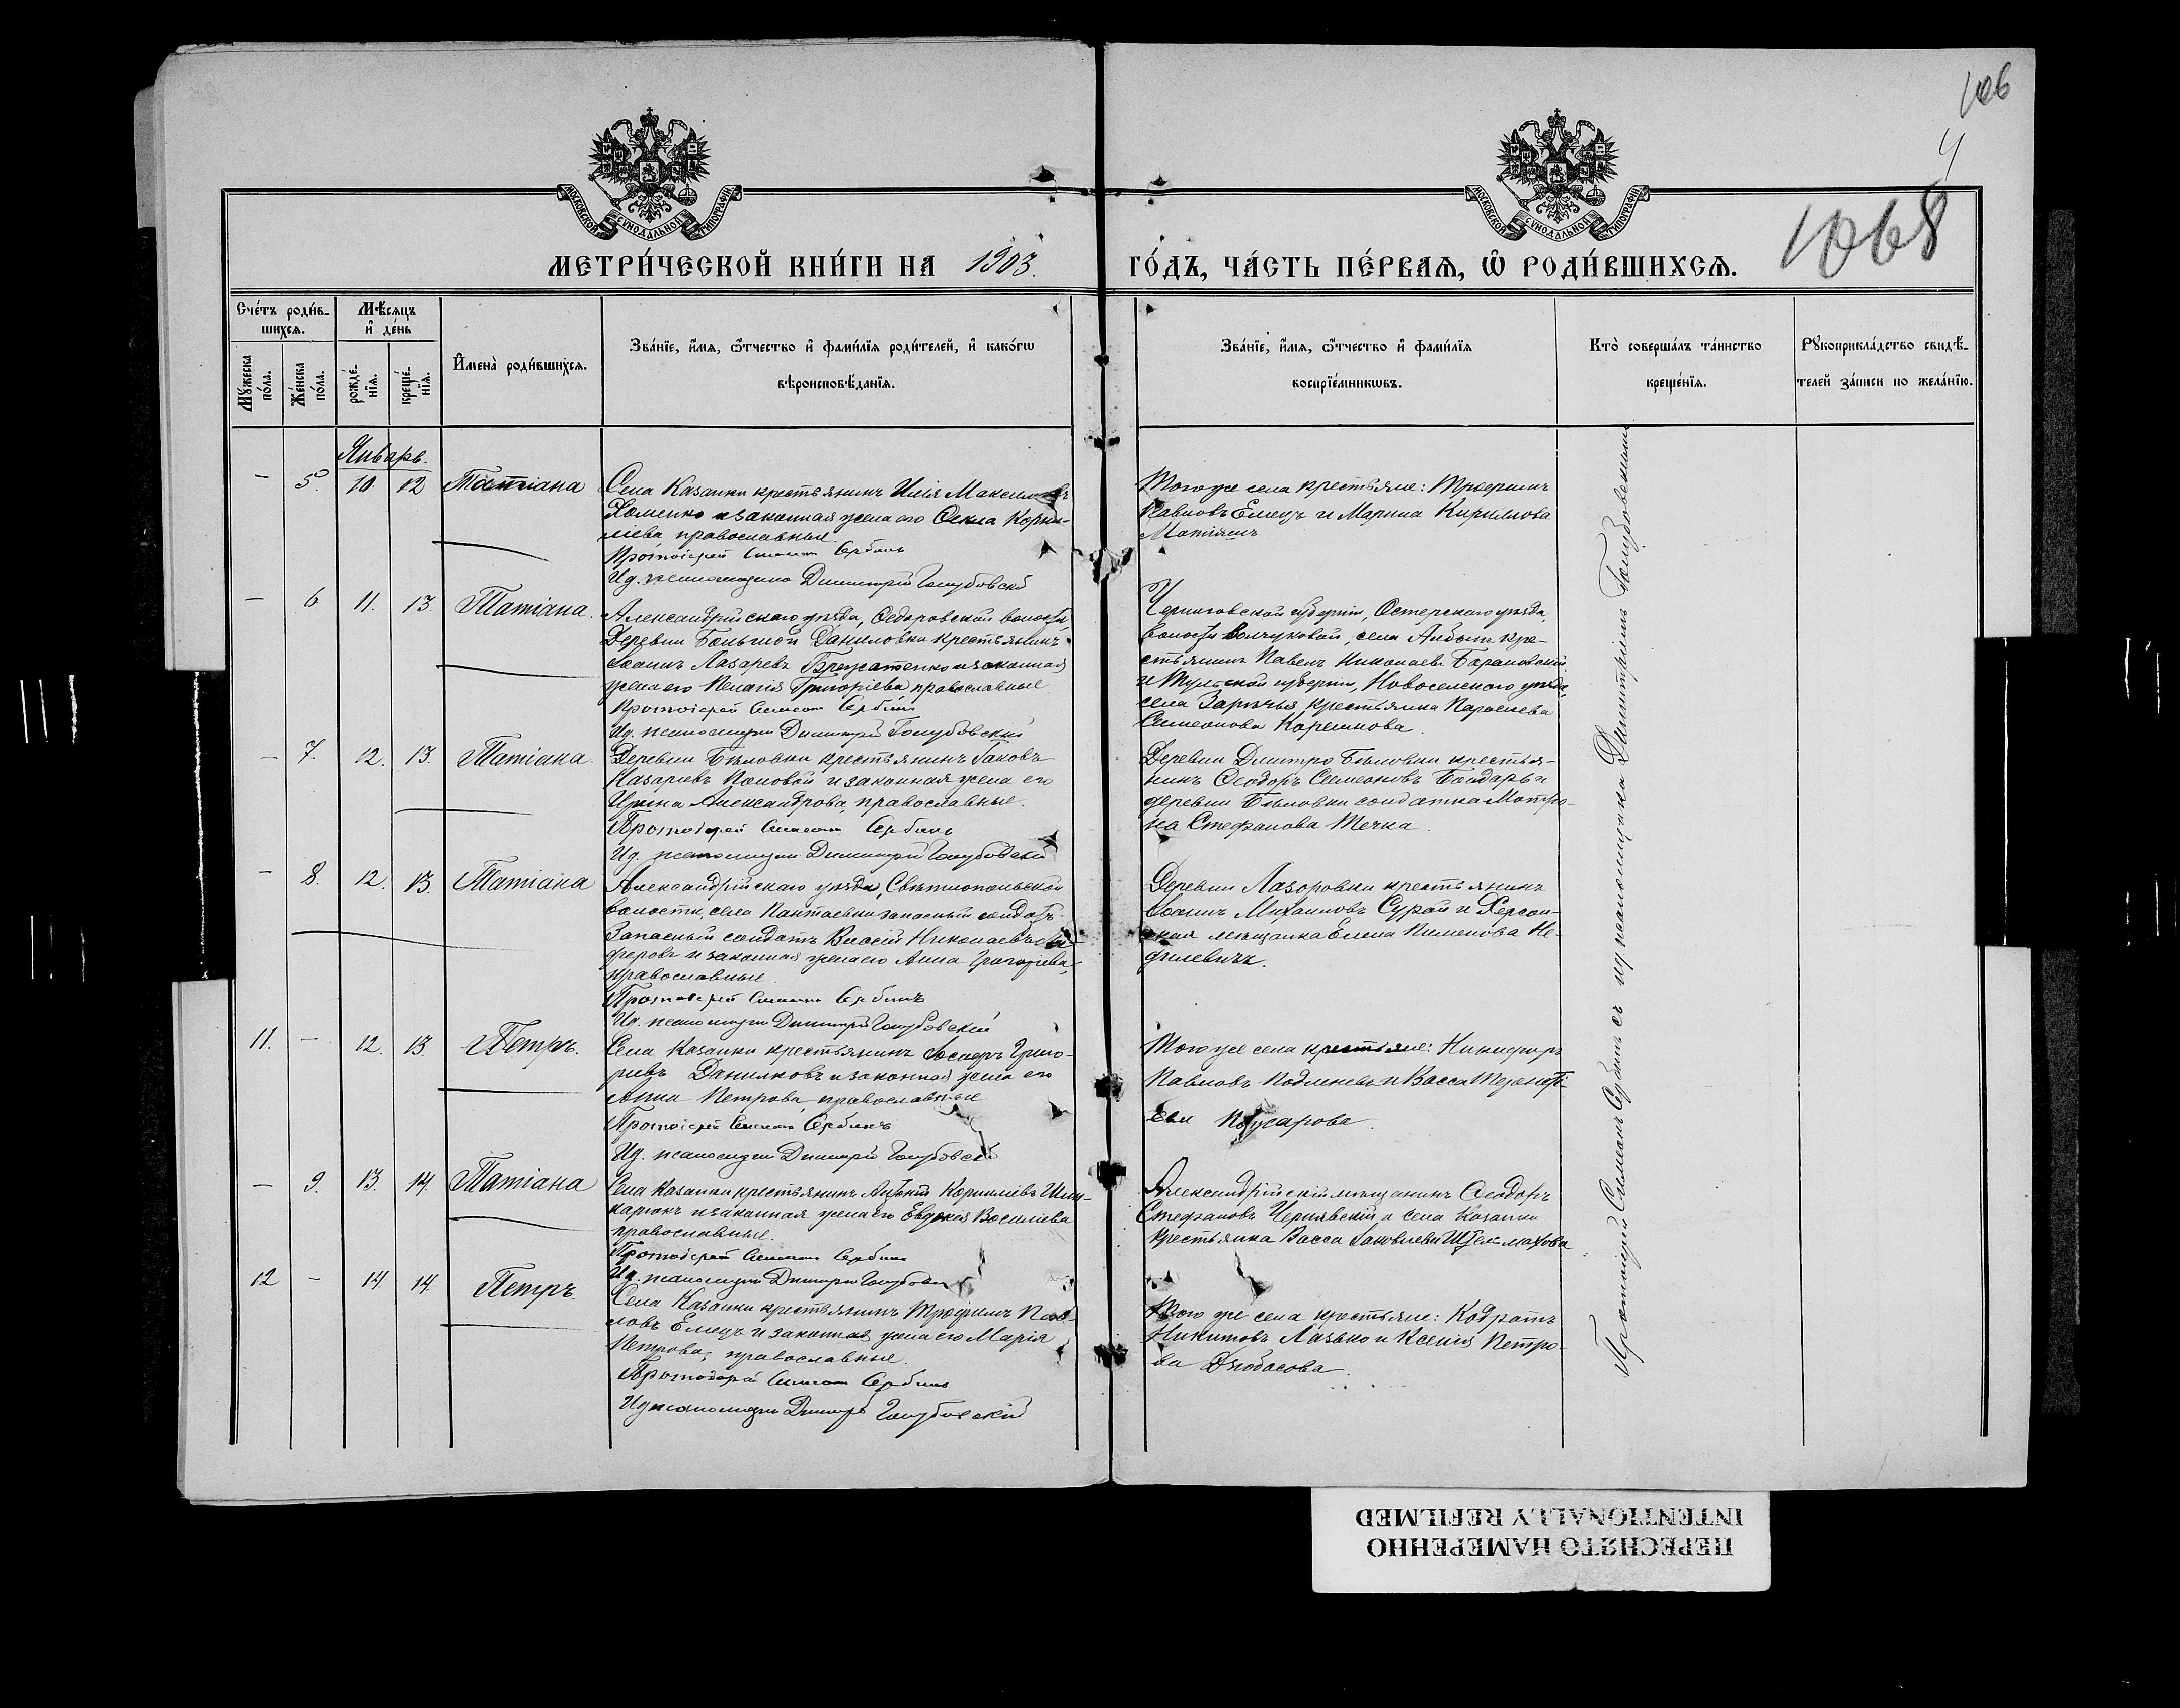 106
4
1068
МОСКОВСКОЙ СѴНОДАЛЬНОЙ ТИПОГРАФІИ
МОСКОВСКОЙ СѴНОДАЛЬНОЙ ТИПОГРАФІИ
МЕТРИ́ЧЕСКОЙ КНИ́ГИ НА 1903. ГО́ДЪ, ЧА́СТЬ ПЕ́РВАѦ, Ѽ РОДИ́ВШИХСѦ.
Сче́тъ роди́в-
шихсѧ.
Мꙋ́жеска по́ла.
Же́нска по́ла.
Мѣ́сѧцъ
и҆ де́нь
рожде́-нїѧ.
креще́-нїѧ.
И҆мена̀ роди́вшихсѧ.
Зва́нїе, и҆́мѧ, ѻ҆́тчество и҆ фами́лїѧ роди́телей, и҆ како́гѡ
вѣроисповѣ́данїѧ.
Зва́нїе, и҆́мѧ, ѻ҆́тчество и҆ фами́лїѧ
воспрїе́мникѡвъ.
Кто̀ соверша́лъ та́инство
креще́нїѧ.
Рꙋкоприкла́дство свидѣ́-
телей за́писи по жела́нїю.
Январь.
— 5. 10. 12 Татіана
Села Казанки крестьянинъ Илія Максимовъ
Хоменко и законная жена его Ѳекла Корни-
ліева православные.
Протоіерей Симеонъ Сербинъ
Ид. псаломщика Димитрій Голубовскій
Того же села крестьяне: Трофимъ
Павловъ Емецъ и Марина Кирилова
— 6 11. 13. Татіана.
Александрійскаго уѣзда, Ѳедоровской волости,
Деревни Большой Даниловки крестьянинъ
Іоаннъ Лазаревъ и законная
жена его Пелагія Григоріева православные
Протоіерей Симеонъ Сербинъ
Ид. псаломщика Димитрій Голубовскій
Черниговской губерніи, Остерскаго уѣзда,
волости села кре-
стьянинъ Павелъ Николаевъ Барановскій
и Тульской губерніи, Новосельскаго уѣзда,
села Зарѣчья крестьянка
Симеонова
— 7. 12. 13. Татіана.
Деревни Бѣловки крестьянинъ Іаковъ
Назаріевъ и законная жена его
Ирина Александрова, православные.
Протоіерей Симеонъ Сербинъ
Ид. псаломщика Димитрій Голубовскій
Деревни Дмитро Бѣловки крестья-
нинъ Ѳеодоръ Симеоновъ Бондарь и
деревни Бѣловки солдатка Матро-
на Стефанова Течка.
— 8. 12. 13. Татіана
Александрійскаго уѣзда, Свѣтлопольской
волости, села Пантаевки запасный солдатъ
Запасный солдатъ Власій Николаевъ
и законная жена его Анна Григоріева,
православные.
Протоіерей Симеонъ Сербинъ
Ид. псаломщика Димитрій Голубовскій
Деревни Лазоровки крестьянинъ
Іоаннъ Михаиловъ Сурай и Херсон-
ская мѣщанка Елена Пименова Не-
филевичъ.
11. — 12. 13. Петръ.
Села Казанки крестьянинъ Іосифъ Григо-
ріевъ Даниловъ и законная жена его
Анна Петрова, православные
Протоіерей Симеонъ Сербинъ
Ид. псаломщика Димитрій Голубовскій
Того же села крестьяне: Никифоръ
Павловъ и Васса
— 9. 13. 14. Татіана
Села Казанки крестьянинъ Антоній Корниліевъ
и законная жена его Евдокія Василіева
православные.
Протоіерей Симеонъ Сербинъ
Ид. псаломщика Димитрій Голубовскій
Александрійскій мѣщанинъ Ѳеодоръ
Стефановъ Чернявскій и села Казанки
крестьянка Васса Іаковлева Штельмахова
12 — 14. 14. Петръ.
Села Казанки крестьянинъ Трофимъ Пав-
ловъ Емецъ и законная жена его Марія
Петрова, православные.
Протоіерей Симеонъ Сербинъ
Ид псаломщика Димитрій Голубовскій
Того же села крестьяне: Кодратъ
Никитовъ Лазько и Ксенія Петро-
ва Дзюбасова.
Протоіерей Симеонъ Сербинъ съ и. д. псаломщика Димитріемъ Голубовскимъ
ПЕРЕСНЯТО НАМЕРЕННО
INTENTIONALLY REFILMED